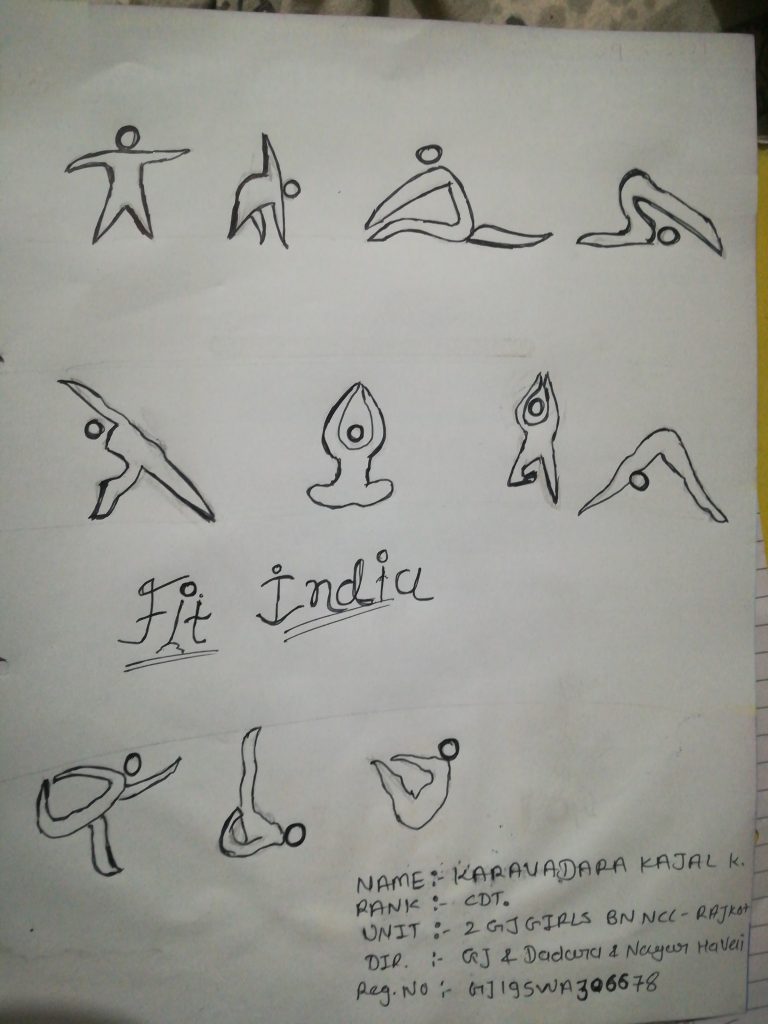 Fit India
NAME:- KARAVADARA KAJAL K.
RANK :- CDT.
UNIT :- 2 GJ GIRLS BN NCC - RAJKOT
DIR. :- GJ & Dadara & Nagar Haveli
Reg. No :- GJ19SWA306678